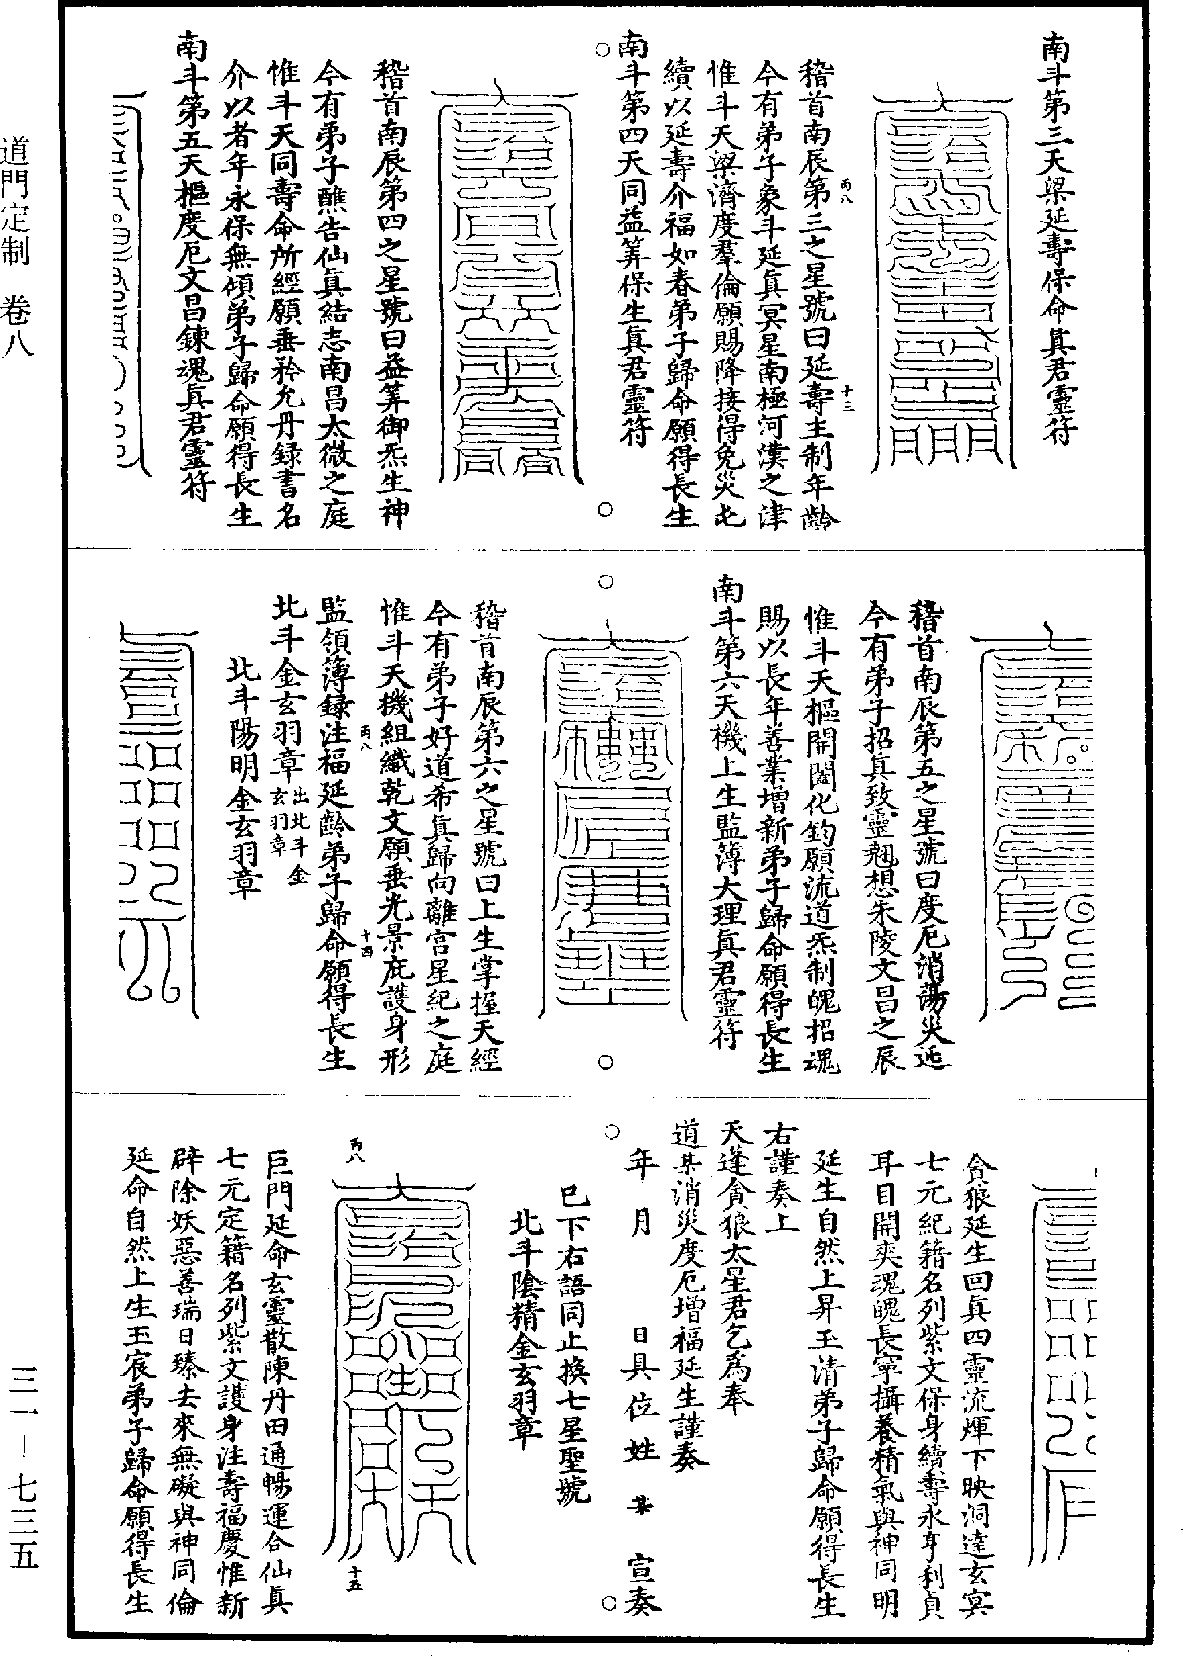 南斗第三天梁延壽保命真君靈符
稽首南辰第三之星號曰延壽主制年齡
今有弟子象斗延真冥星南極河漢之津
惟斗天梁濟度羣倫願賜降接得免災屯
續以延壽介福如春弟子歸命願得長生
南斗第四天同益筭保生真君靈符
稽首南辰第四之星號曰益筭御炁生神
今有弟子醮告仙真結志南昌太微之庭
惟斗天同壽命所經願垂矜允丹錄書名
介以者年永保無傾弟子歸命願得長生
南斗第五天樞度厄文昌鍊魂真君靈符
稽首南辰第五之星號曰度厄消蕩災迍
今有弟子招真致靈翹想朱陵文昌之辰
惟斗天樞開闔化鈞願流道炁制魄招魂
賜以長年善業增新弟子歸命願得長生
南斗第六天機上生監簿大理真君靈符
稽首南辰第六之星號曰上生掌握天經
今有弟子好道希真歸向離宮星紀之庭
惟斗天機組織乾文願垂光景庇護身形
監領簿錄注福延齡弟子歸命願得長生
北斗金玄羽章 出北斗金玄羽章
北斗陽明金玄羽章
貪狼延生回真四靈流煇下映洞達玄冥
七元紀籍名列紫文保身續壽永亨利貞
耳目開爽魂魄長寧攝養精氣與神同明
延生自然上昇玉清弟子歸命願得長生
右謹奏上
天逢貪狼太星君乞為奉
道某消災度厄增福延生謹奏
年 月 日具位姓 某 宣奏
已下右語同止換七星聖號
北斗陰精金玄羽章
巨門延命玄靈散陳丹田通暢運合仙真
七元定籍名列紫文護身注壽福慶惟新
辟除妖惡善瑞日臻去來無礙與神同倫
延命自然上生玉宸弟子歸命願得長生
丙八
十三
丙八
十四
丙八
十五
道門定制 卷八
三一—七三五